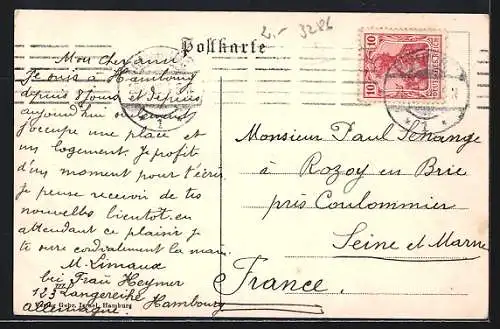 2.- 3286
Postkarte
10 10
DEUTSCHES REICH
Mon cher ami
Je suis à Hambourg
depuis 8 jours et depuis
aujourd'hui seulement
j'occupe une place et
un logement. Je profit
d'un moment pour t'écrire
Je pense recevoir de tes
nouvelles bientot. en
attendant ce plaisir je
te serre cordialement la main.
M. Limaux
bei Frau Heymer
123 III Langereihe
Gebr. Israel, Hamburg
Hambourg
Allemagne.
Monsieur Paul
à Rozoy en Brie
près Coulommier
Seine et Marne
France.